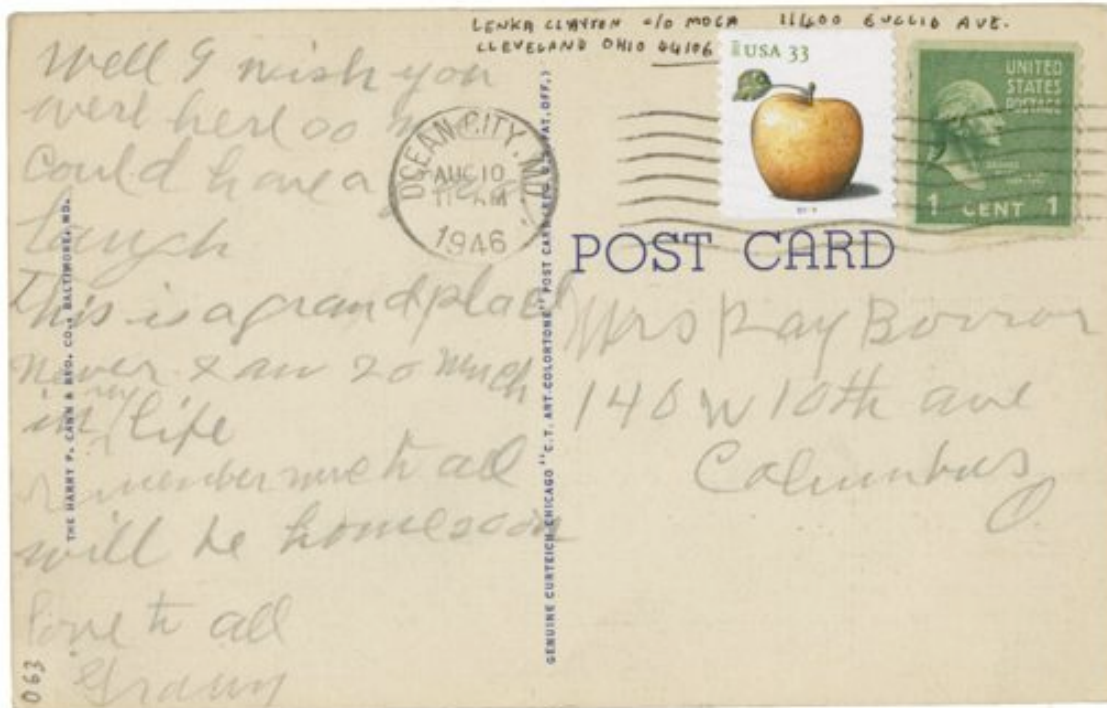 LENKA CLAYTON c/o MOCA 11400 EUCLID AVE.
CLEVELAND OHIO 44106
USA 33
UNITED
STATES
POSTAGE
1 CENT 1
OCEAN CITY, MD.
AUG 10
11 AM
1946
POST CARD
Well I wish you
were here so
could have a
laugh
This is a grand place
never saw so much
in my life
Remember me to all
will be home soon
Love to all
Granny
Mrs Ray Borror
140 W 10th ave
Columbus
O
THE HARRY P. CANN & BRO. CO., BALTIMORE, MD.
GENUINE CURTEICH-CHICAGO "C.T. ART-COLORTONE" POST CARD (REG. U.S. PAT. OFF.)
063